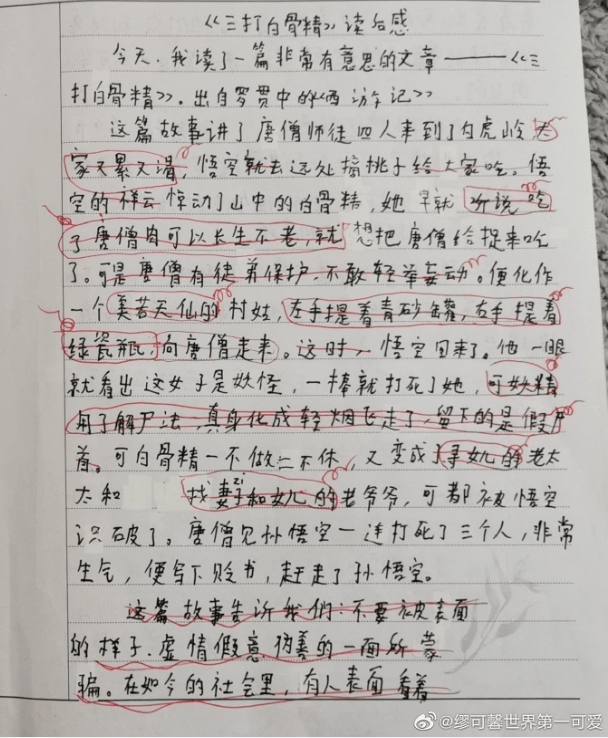 《三打白骨精》读后感
今天,我读了一篇非常有意思的文章——《三
打白骨精》,出自罗贯中的《西游记》
这篇故事讲了唐僧师徒四人来到了白虎岭,大
家又累又渴,悟空就去远处摘桃子给大家吃。悟
空的祥云惊动了山中的白骨精,她早就听说吃
了唐僧肉可以长生不老,就想把唐僧给捉来吃
了。可是唐僧有徒弟保护,不敢轻举妄动。便化作
一个美若天仙的村姑,左手提着青砂罐,右手提着
绿瓷瓶,向唐僧走来。这时,悟空回来了。他一眼
就看出这女子是妖怪,一棒就打死了她,可妖精
用了解尸法,真身化成轻烟飞走了,留下的是假尸
首。可白骨精一不做二不休,又变成了寻女儿的老太
太和 找妻子和女儿的老爷爷,可都被悟空
识破了。唐僧见孙悟空一连打死了三个人,非常
生气,便写下贬书,赶走了孙悟空。
这篇故事告诉我们:不要被表面
的样子、虚情假意伪善的一面所蒙
骗。在如今的社会里,有人表面看着
zi
@缪可馨世界第一可爱